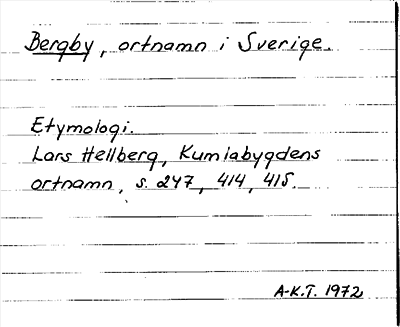 Bergby, ortnamn i Sverige.
Etymologi.
Lars Hellberg, Kumlabygdens
ortnamn, s. 247, 414, 415.
A-K.T. 1972